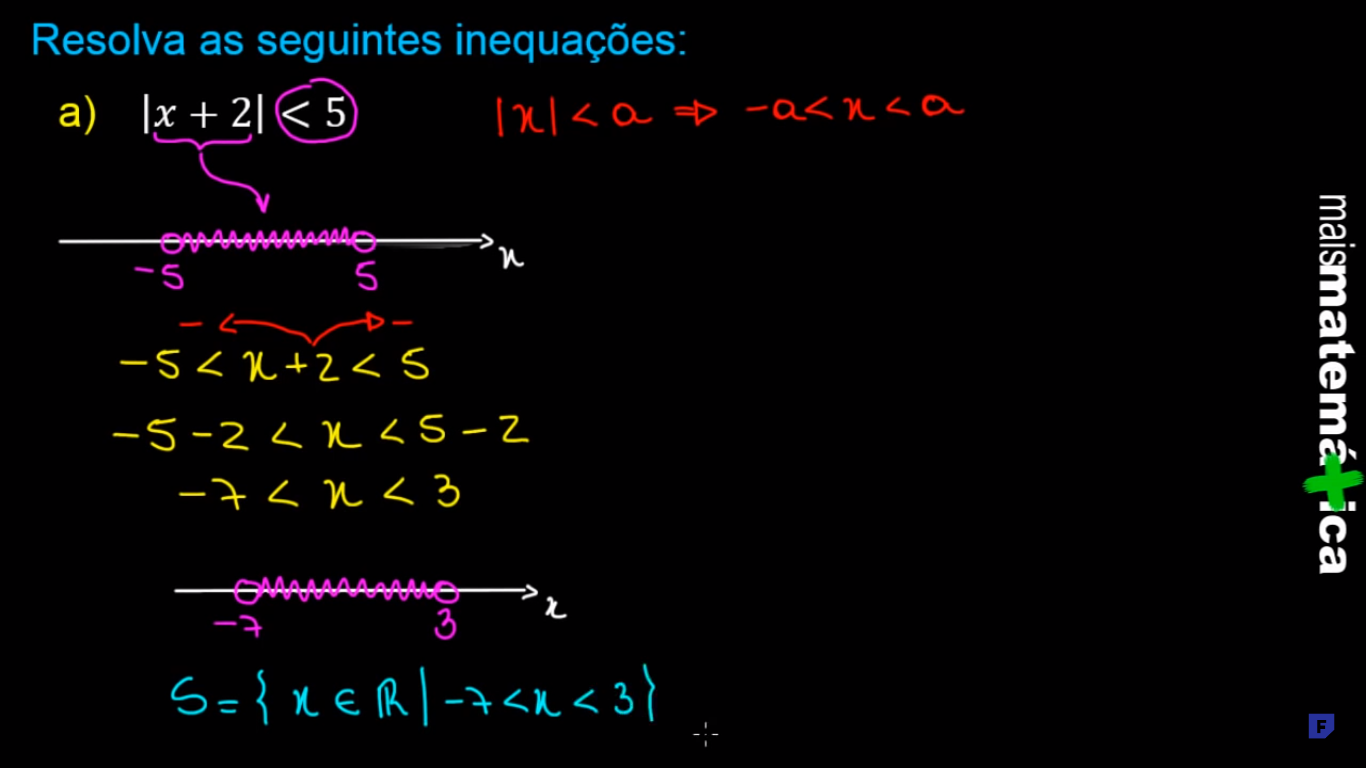 Resolva as seguintes inequações:
a) |x + 2| < 5 |x| < a ⇒ -a < x < a
x
-5 5
- -
-5 < x + 2 < 5
-5 - 2 < x < 5 - 2
-7 < x < 3
x
-7 3
S = { x ∈ ℝ | -7 < x < 3 }
maismatemática
F